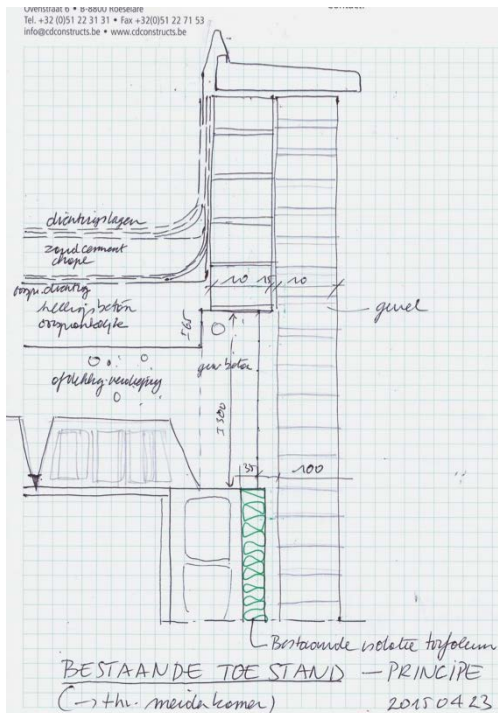 Ovenstraat 6 • B-8800 Roeselare
Tel. +32 (0)51 22 31 31 • Fax +32(0)51 22 71 53
info@cdconstructs.be • www.cdconstructs.be
dichtingslagen
zandcement
chape
hellingsbeton
oorspronkelijke
10 15 10
gevel
565
gew beton
opdeklaag verdieping
35 100
Bestaande isolatie
BESTAANDE TOESTAND — PRINCIPE
(→ thv. meidekamer)
20150423